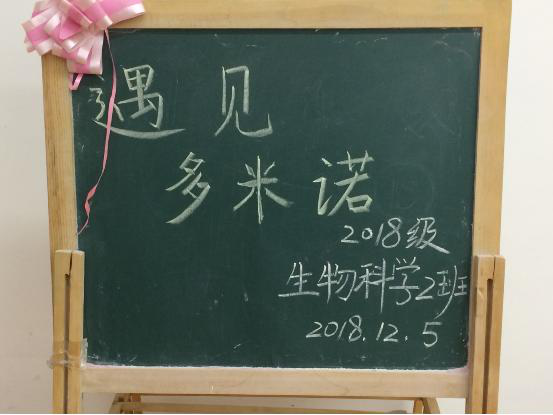 遇见
多米诺
2018级
生物科学2班
2018.12.5